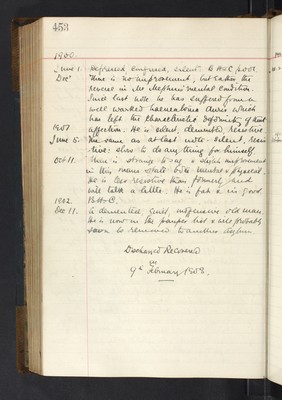 453
1900.
June 1. Depressed, silent. B.H & C. poor.
Dec There is no improvement, but rather the
reverse in Mr mental condition.
Since last note he has suffered from a
well marked haematoma Auris which
has left the characteristic deformity of that
1901 affection. He is silent, demented, resistive
June 5. The same as at last note - silent, resis-
tive: slow to do anything for himself
Oct 11. There is strange to say a slight improvement
in this man's state both mental & physical
He is less resistive than formerly, and
will talk a little. He is fat & in good
1902. B.H & C.
Dec 11. A demented, quiet, inoffensive old man.
He is now on the pauper list & will probably
soon be removed to another asylum.
Discharged Recovered
9th February 1903.